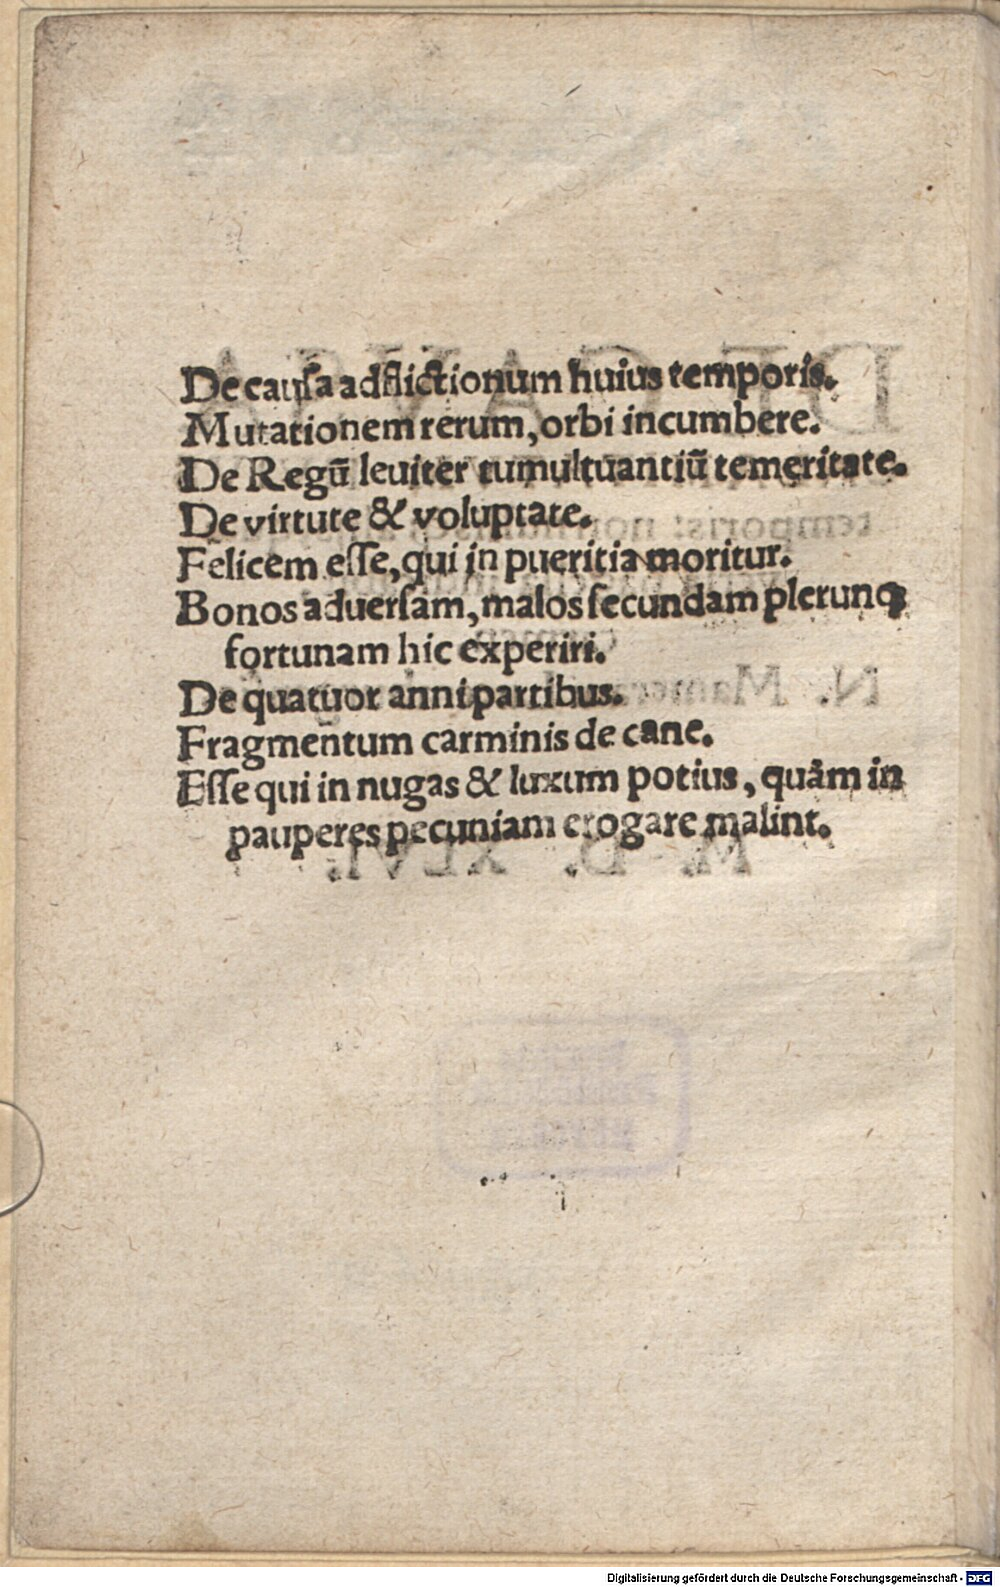 De cauſa adflictionum huius temporis.
Mutationem rerum, orbi incumbere.
De Regū leuiter tumultuantiū temeritate.
De virtute & voluptate.
Felicem eſſe, qui in pueritia moritur.
Bonos aduerſam, malos ſecundam plerunqꝫ
fortunam hic experiri.
De quatuor anni partibus.
Fragmentum carminis de cane.
Eſſe qui in nugas & luxum potius, quàm in
pauperes pecuniam erogare malint.
Digitalisierung gefördert durch die Deutsche Forschungsgemeinschaft - DFG